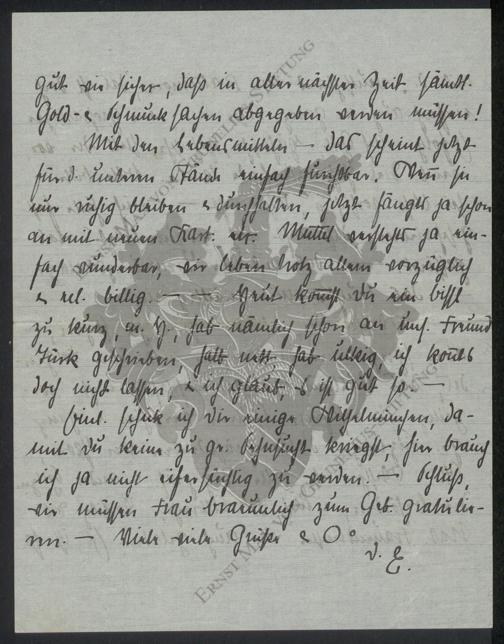 gut wie sicher, daß in allernächster Zeit sämtl.
Gold- & Schmucksachen abgegeben werden müssen!
Mit den Lebensmitteln — das scheint jetzt
für d. unteren Stände einfach furchtbar. Wenn sie
nur ruhig bleiben & durchhalten, jetzt fängts ja schon
an mit neuen Kart. etc. Muttel verstehts ja ein-
fach wunderbar, wir leben trotz allem vorzüglich
& rel. billig. — — Heut kommst Du ein bissl
zu kurz, m. H., hab nämlich schon an uns. Freund
Türk geschrieben, halb nett halb ulkig, ich konnts
doch nicht lassen, & ich glaub, es ist gut so —
Viell. schick ich Dir einige Wilhelminchen, da-
mit du keine zu gr. Sehnsucht kriegst, hier brauch
ich ja nicht eifersüchtig zu werden. — Schluß,
wir müssen Frau Braeunlich zum Geb. gratulie-
ren. — Viele viele Grüße & O°
D. E.
ERNST MAX VON
STIFTUNG